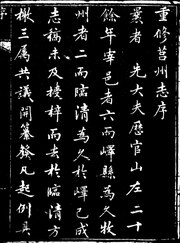 重修莒州志序
曩者　先大夫歷官山左二十
餘年宰邑者六而嶧縣為久牧
州者二而臨清為久於嶧已成
志稿未及授梓而去於臨清方
檄三屬共議開纂發凡起例具